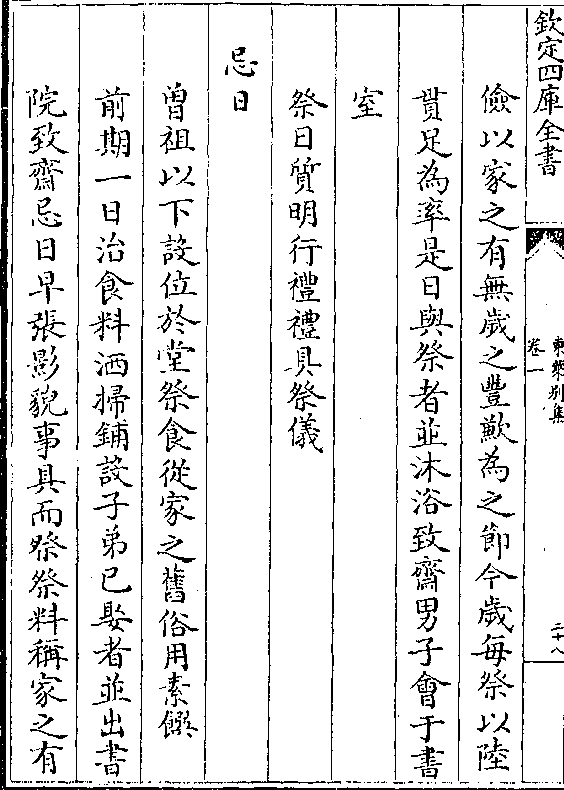 欽定四庫全書
東萊別集
卷一
二十八
儉以家之有無歲之豐歉為之節今歲每祭以陸
貫足為率是日與祭者並沐浴致齋男子會于書
室
祭日質明行禮禮具祭儀
忌日
曽祖以下設位於堂祭食從家之舊俗用素饌
前期一日治食料洒掃鋪設子弟已娶者並出書
院致齋忌日早張影貌事具而祭祭料稱家之有